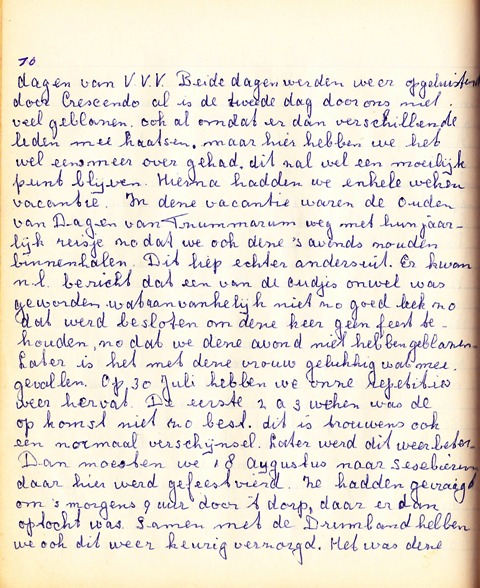 70
dagen van V.V.V. Beide dagen werden weer opgeluisterd
door Crescendo al is de tweede dag door ons niet
veel geblazen. ook al omdat er dan verschillende
leden mee kaatsen, maar hier hebben we het
wel eens meer over gehad. dit zal wel een moeilijk
punt blijven. Hierna hadden we enkele weken
vacantie. In deze vacantie waren de Ouden
van Dagen van Tzummarum weg met hun jaar-
lijk reisje zodat we ook deze 's avonds zouden
binnenhalen. Dit liep echter anders uit. Er kwam
n.l. bericht dat een van de oudjes onwel was
geworden, wat aanvankelijk niet zo goed leek zo
dat werd besloten om deze keer geen feest te
houden, zodat we deze avond niet hebben geblazen
Later is het met deze vrouw gelukkig wat mee.
gevallen. Op 30 Juli hebben we onze repetities
weer hervat. De eerste 2 a 3 weken was de
op komst niet zo best. dit is trouwens ook
een normaal verschijnsel. Later werd dit weer beter.
Dan moesten we 18 Augustus naar Sexbierum
daar hier werd gefeestvierd. Ze hadden gevraagd
om 's morgens 9 uur door 't dorp, daar er dan
optocht was. Samen met de Drumband hebben
we ook dit weer keurig verzorgd. Het was deze